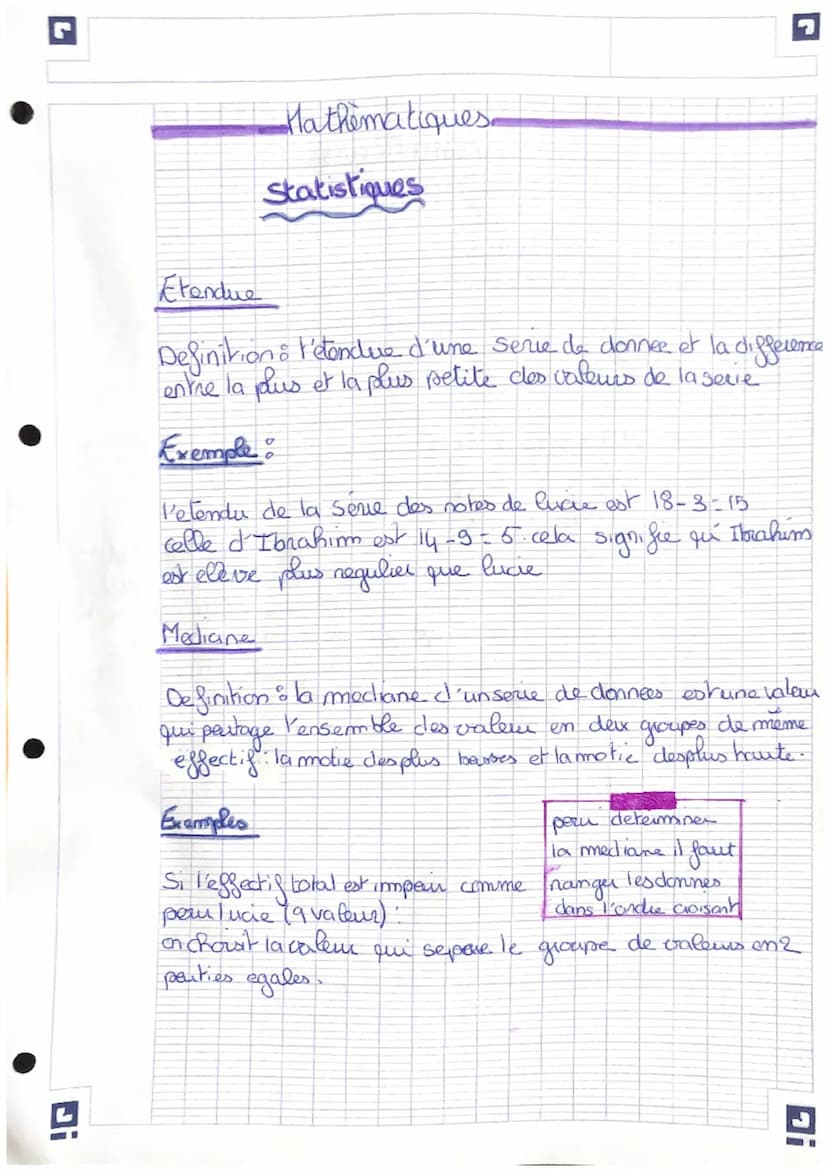 Mathèmatiques
Statistiques
Etendue
Definition : l'etendue d'une serie de donnee et la difference
entre la plus et la plus petite des valeurs de la serie
Exemple :
l'etendu de la série des notes de lucie est 18-3=15
celle d'Ibrahim est 14-9=5. cela signifie qui Ibrahim
est elève plus regulier que lucie
Mediane
Definition : la mediane d'un serie de donnees est une valeur
qui partage l'ensemble des valeur en deux groupes de même
effectif : la motie des plus basses et la motie des plus haute.
Exemples
pour determiner
la mediane il faut
ranger les donnes
dans l'ordre croisant
Si l'effectif total est impair comme
pour lucie (9 valeur) :
on choisit la valeur qui separe le groupe de valeurs en 2
parties egales.